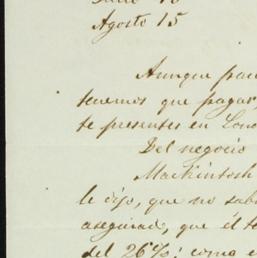 Julio 10
Agosto 15
Aunque
tenemos que pagar
te presentes en
Del negocio
Mackintosh
le dijo, que no
asegurado, que él
del 26%; como